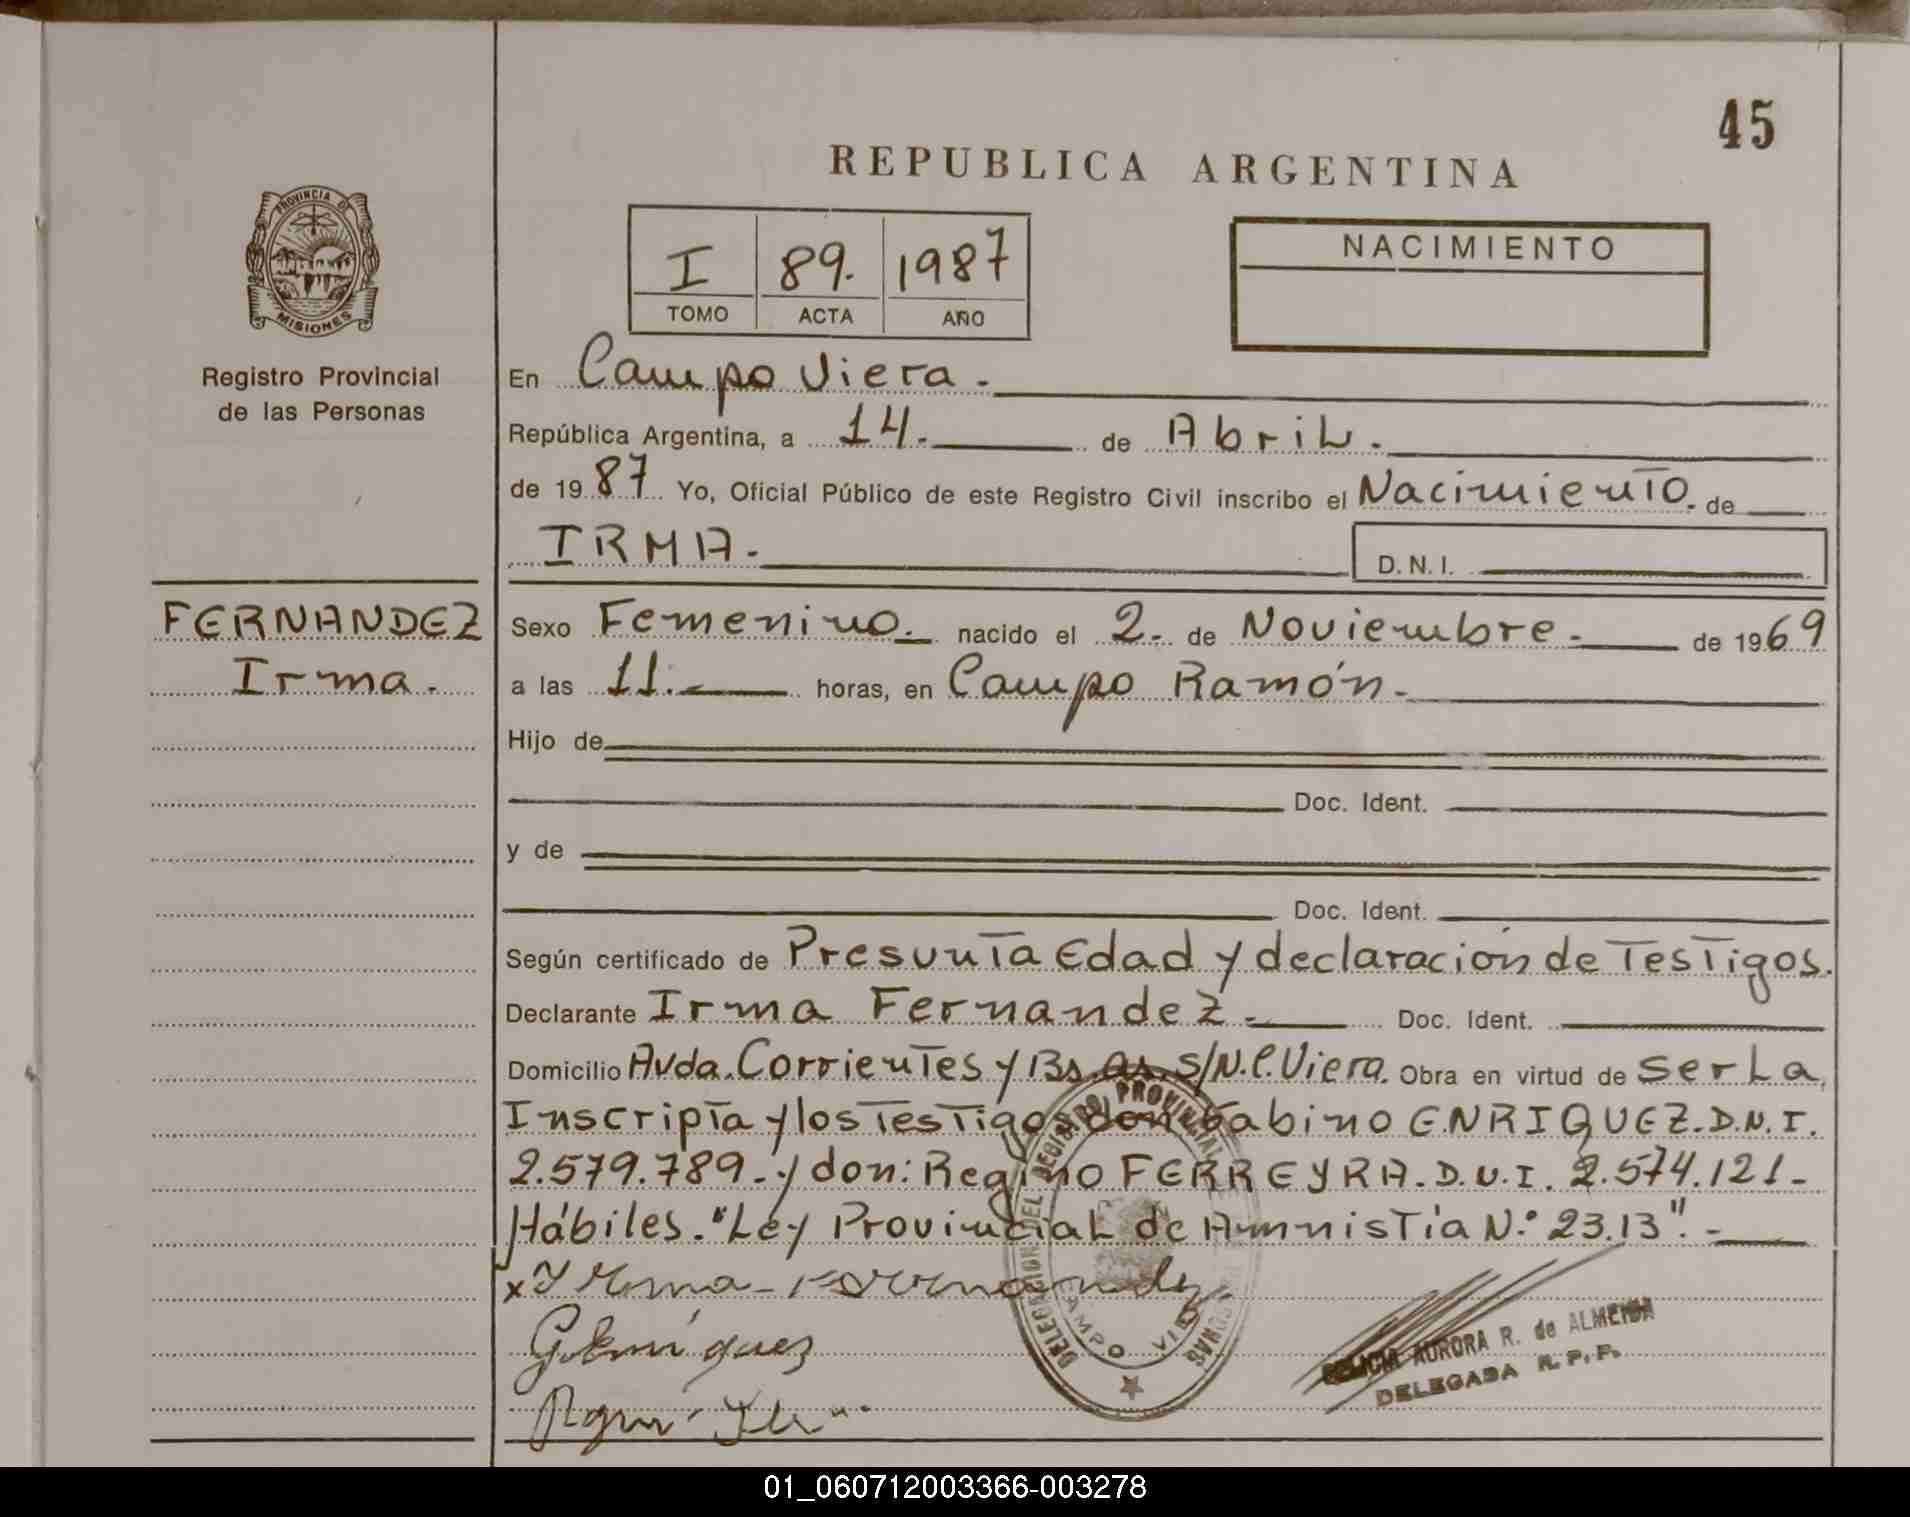 45
REPUBLICA ARGENTINA
PROVINCIA DE
MISIONES
Registro Provincial
de las Personas
I 89. 1987
TOMO ACTA AÑO
NACIMIENTO
En Campo Viera.
República Argentina, a 14. de Abril.
de 1987 Yo, Oficial Público de este Registro Civil inscribo el Nacimiento. de
IRMA. D.N.I.
FERNANDEZ
Irma.
Sexo Femenino. nacido el 2. de Noviembre. de 1969
a las 11. horas, en Campo Ramón.
Hijo de
Doc. Ident.
y de
Doc. Ident.
Según certificado de Presunta Edad y declaración de Testigos.
Declarante Irma Fernandez. Doc. Ident.
Domicilio Avda. Corrientes y Bs. as. s/N. C. Viera. Obra en virtud de ser La
Inscripta y los Testigos don Gabino ENRIQUEZ. D.N.I.
2.579.789. y don: Regino FERREYRA. D.N.I. 2.574.121-
Hábiles. "Ley Provincial de Amnistía N.° 23.13".-
x Irma Fernandez
G. Enriquez
DELEGACION DEL REGISTRO PROVINCIAL DE LAS PERSONAS
CAMPO VIERA
FELICIA AURORA R. de ALMEIDA
DELEGADA R.P.P.
01_060712003366-003278